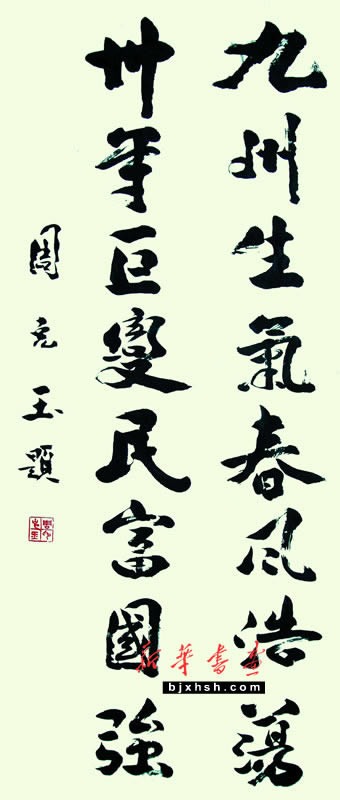 九州生氣春風浩蕩
卅年巨變民富國強
周克玉題
新华书画
bjxhsh.com